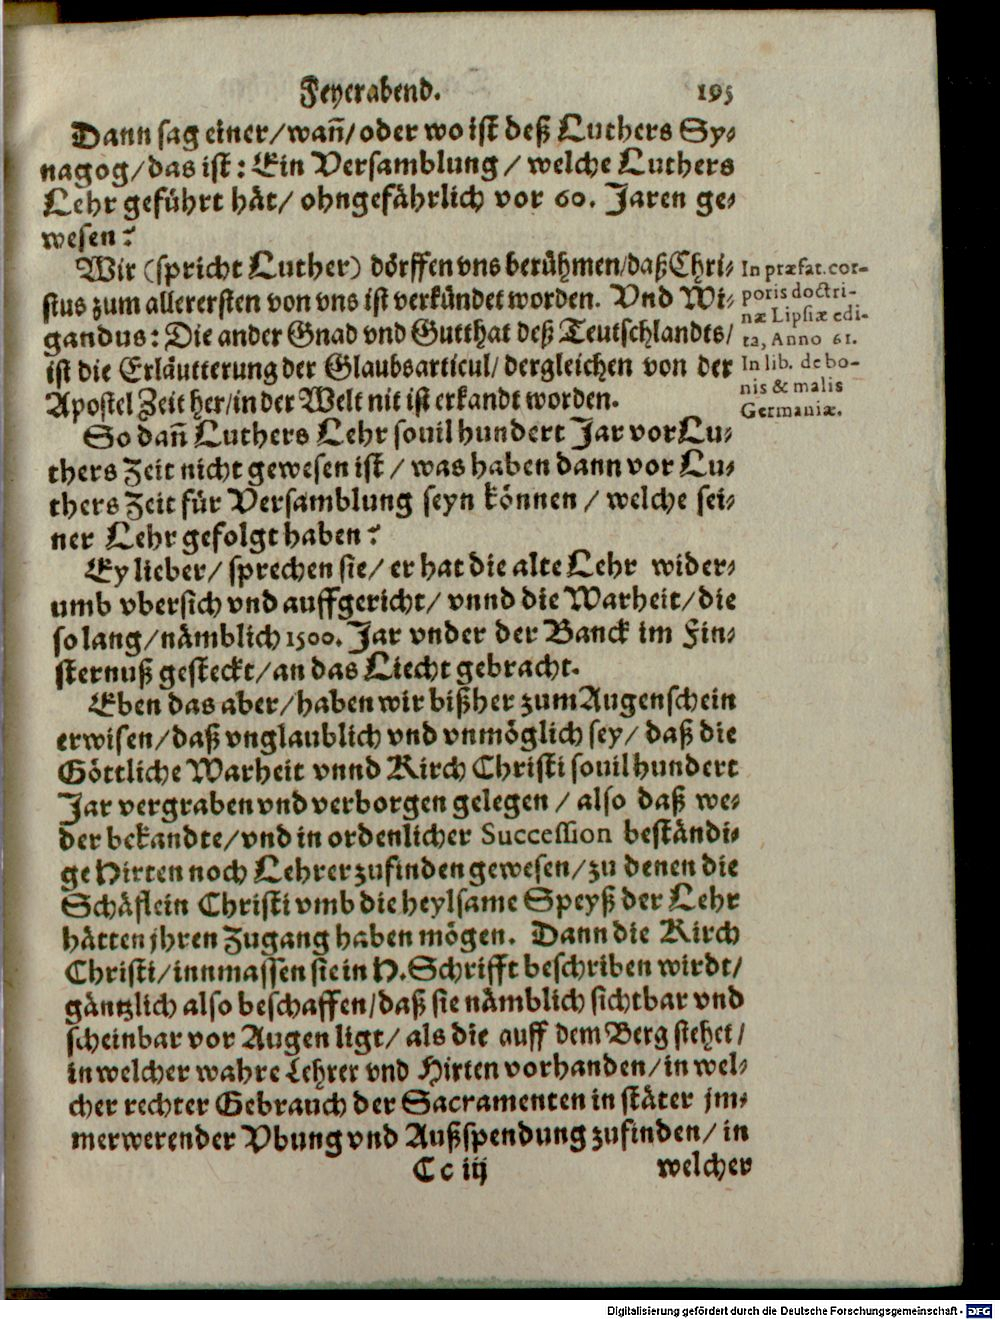 Feyerabend. 195
Dann sag einer/wañ/oder wo ist deß Luthers Sy-
nagog/das ist: Ein Versamblung/ welche Luthers
Lehr geführt hät/ ohngefährlich vor 60. Jaren ge-
wesen?
Wir (spricht Luther) dörffen vns berühmen/daß Chri-
stus zum allerersten von vns ist verkündet worden. Vnd Wi-
gandus: Die ander Gnad vnd Gutthat deß Teutschlandts/
ist die Erläutterung der Glaubsarticul/ dergleichen von der
Apostel Zeit her/in der Welt nit ist erkandt worden.
In præfat. cor-
poris doctri-
næ Lipsiæ edi-
ta, Anno 61.
In lib. de bo-
nis & malis
Germaniæ.
So dañ Luthers Lehr souil hundert Jar vor Lu-
thers Zeit nicht gewesen ist/ was haben dann vor Lu-
thers Zeit für Versamblung seyn können/ welche sei-
ner Lehr gefolgt haben?
Ey lieber/ sprechen sie/ er hat die alte Lehr wider-
umb vbersich vnd auffgericht/ vnnd die Warheit/die
so lang/nämblich 1500. Jar vnder der Banck im Fin-
sternuß gesteckt/an das Liecht gebracht.
Eben das aber/haben wir bißher zum Augenschein
erwisen/daß vnglaublich vnd vnmöglich sey/ daß die
Göttliche Warheit vnnd Kirch Christi souil hundert
Jar vergraben vnd verborgen gelegen/ also daß we-
der bekandte/vnd in ordenlicher Succession beständi-
ge Hirten noch Lehrer zufinden gewesen/zu denen die
Schäflein Christi vmb die heylsame Speyß der Lehr
hätten jhren Zugang haben mögen. Dann die Kirch
Christi/innmassen sie in H. Schrifft beschriben wirdt/
gäntzlich also beschaffen/daß sie nämblich sichtbar vnd
scheinbar vor Augen ligt/ als die auff dem Berg stehet/
in welcher wahre Lehrer vnd Hirten vorhanden/in wel-
cher rechter Gebrauch der Sacramenten in stäter jm-
merwerender Vbung vnd Außspendung zufinden/ in
Cc iij welcher
Digitalisierung gefördert durch die Deutsche Forschungsgemeinschaft - DFG